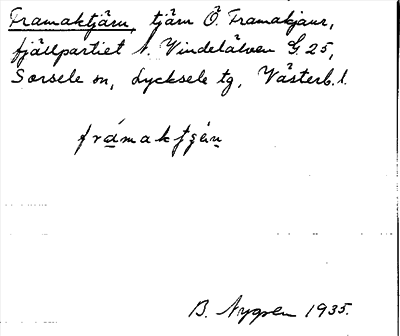 Framaktjärn, tjärn Ö. Framakjaur,
fjällpartiet N. Vindelälven G. 25,
Sorsele sn, Lycksele tg, Västerb. l.
framaktjä̀n
B. Nygren 1935.